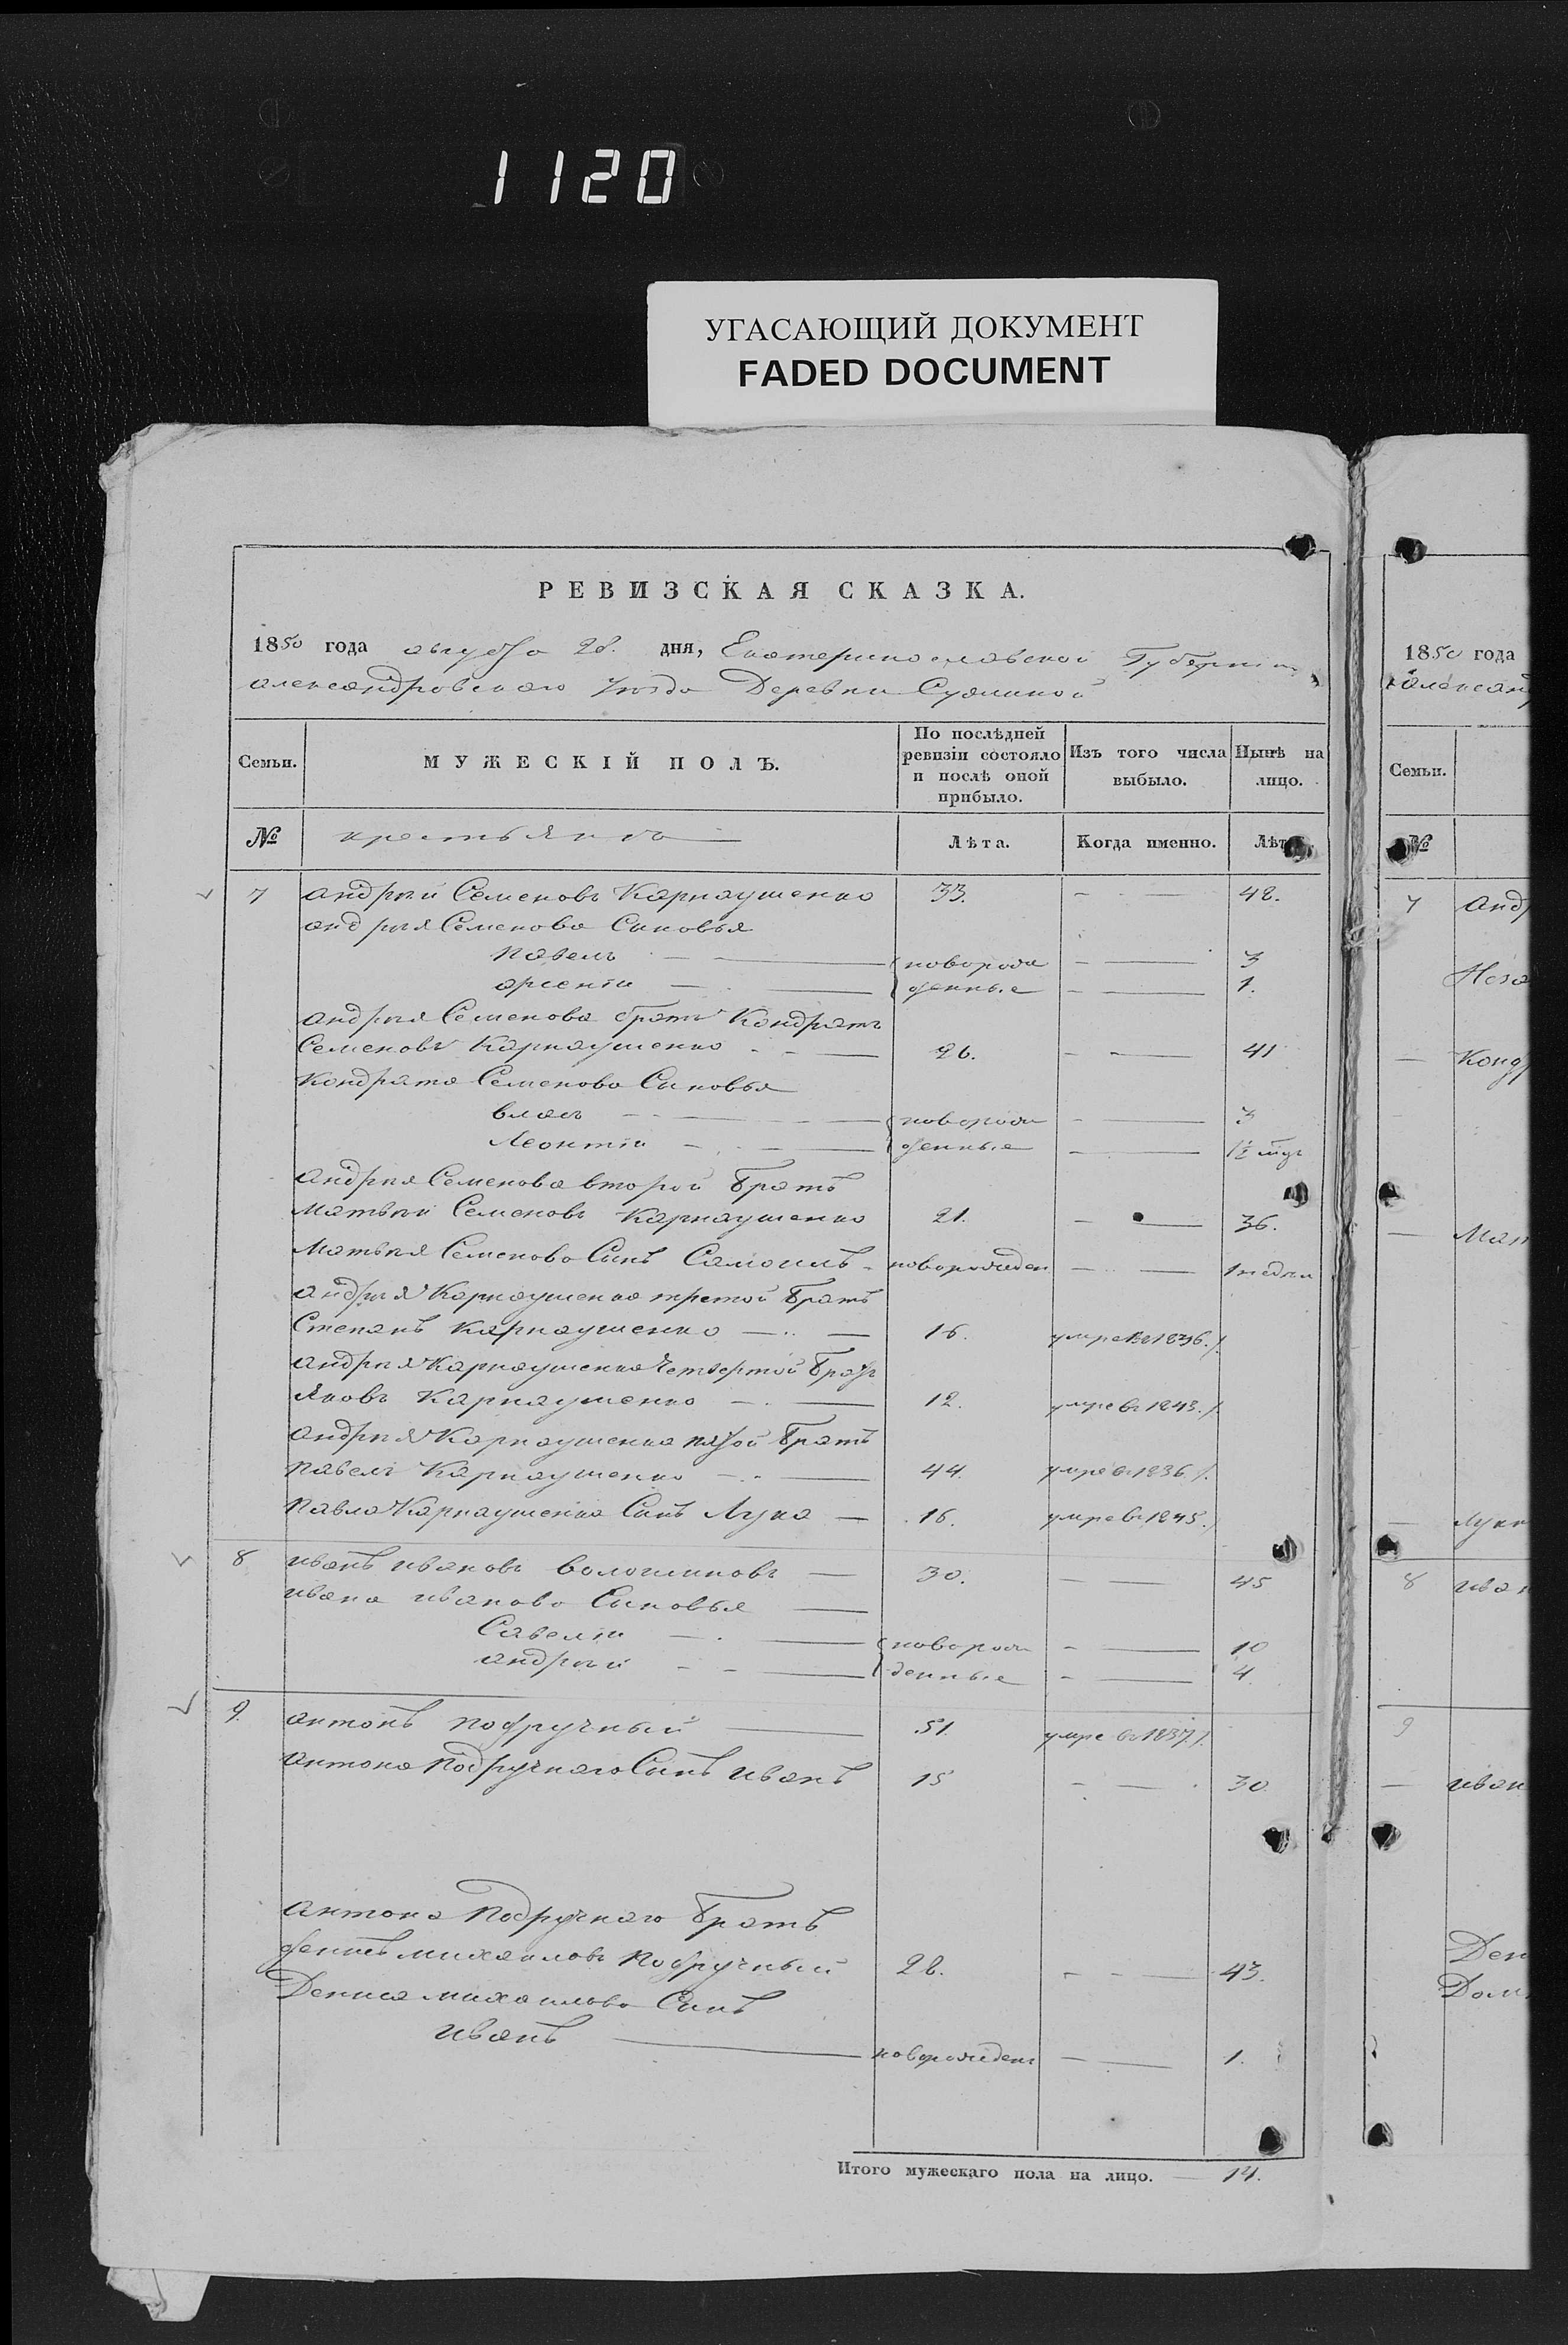 1120
УГАСАЮЩИЙ ДОКУМЕНТ
FADED DOCUMENT
РЕВИЗСКАЯ СКАЗКА.
1850 года августа 28. дня, Екатеринославской Губернии
александровскаго Уезда Деревни
Семьи. МУЖЕСКІЙ ПОЛЪ. По послѣдней ревизіи состояло и послѣ оной прибыло. Изъ того числа выбыло. Нынѣ на лицо.
№ крестьянъ Лѣта. Когда именно. Лѣта
7 андрѣй Семеновъ Карнаушенко 33. 48.
андрѣя Семенова Сыновья
Павелъ новорож 3
арсентiи денные 1.
андрѣя Семенова братъ Кондратъ
Семеновъ Карнаушенко 26. 41
Кондрата Семенова Сыновья
власъ новорож 3
Леонтiи денные 1½
андрѣя Семенова второй братъ
Матвѣй Семеновъ Карнаушенко 21. 36.
Матвѣя Семенова Сынъ Самоилъ новорожден 1 недѣли
андрѣя Карнаушенка третой братъ
Степанъ Карнаушенко 16. умре въ 1836.
андрѣя Карнаушенка Четвертой братъ
Яковъ Карнаушенко 12. умре въ 1843.
андрѣя Карнаушенка пятой братъ
Павелъ Карнаушенко 44. умре въ 1836
Павла Карнаушенка Сынъ Лука 16. умре въ 1845.
8 иванъ ивановъ волошиновъ 30. 45
ивана иванова Сыновья
Савелiи новорож 10
андрѣй денные 4.
9. антонъ подручный 51. умре въ 1837
антона Подручнаго Сынъ иванъ 15 30.
антона Подручнаго братъ
денисъ михаиловъ Подручный 28. 43.
Дениса михаилова Сынъ
иванъ новорожденъ 1.
Итого мужескаго пола на лицо. 14.
1850 года
александ
Семьи.
№
7 Анд
Конд
Мат
Луки
8 иван
9
иван
Ден
Дом